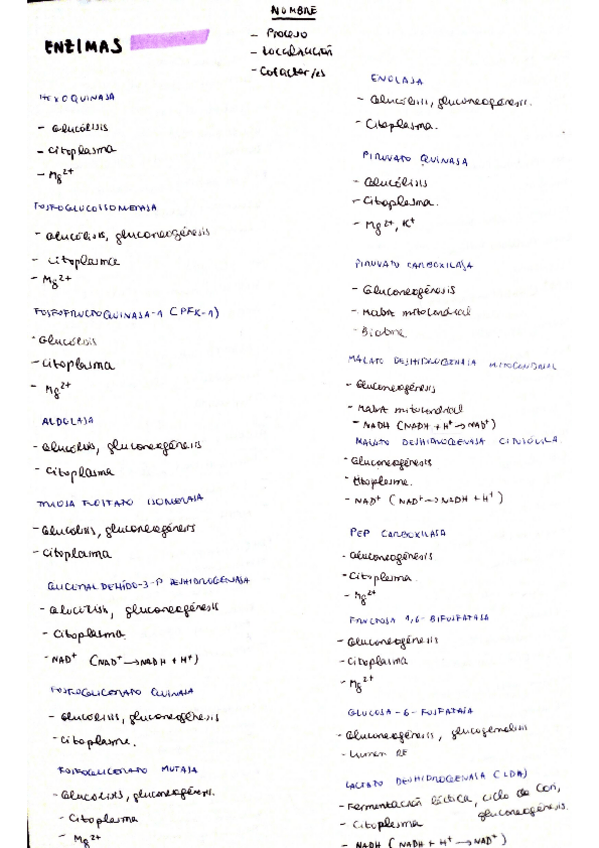 NOMBRE
- Proceso
- Localización
- Cofactor/es
ENZIMAS
HEXOQUINASA
- Glucólisis
- Citoplasma
- Mg2+
FOSFOGLUCOISOMERASA
- Glucólisis, gluconeogénesis
- Citoplasma
- Mg2+
FOSFOFRUCTOQUINASA-1 (PFK-1)
- Glucólisis
- Citoplasma
- Mg2+
ALDOLASA
- Glucólisis, gluconeogénesis
- Citoplasma
TRIOSA FOSFATO ISOMERASA
- Glucólisis, gluconeogénesis
- Citoplasma
GLICERALDEHIDO-3-P DESHIDROGENASA
- Glucólisis, gluconeogénesis
- Citoplasma.
- NAD+ (NAD+ → NADH + H+)
FOSFOGLICERATO QUINASA
- Glucólisis, gluconeogénesis
- Citoplasma.
FOSFOGLICERATO MUTASA
- Glucólisis, gluconeogénesis.
- Citoplasma
- Mg2+
ENOLASA
- Glucólisis, gluconeogénesis.
- Citoplasma.
PIRUVATO QUINASA
- Glucólisis
- Citoplasma.
- Mg2+, K+
PIRUVATO CARBOXILASA
- Gluconeogénesis
- Matriz mitocondrial
- Biotina
MALATO DESHIDROGENASA MITOCONDRIAL
- Gluconeogénesis
- Matriz mitocondrial
- NADH (NADH + H+ → NAD+)
MALATO DESHIDROGENASA CITOSÓLICA
- Gluconeogénesis
- Citoplasma.
- NAD+ (NAD+ → NADH + H+)
PEP CARBOXILASA
- Gluconeogénesis
- Citoplasma.
- Mg2+
FRUCTOSA 1,6-BIFOSFATASA
- Gluconeogénesis
- Citoplasma
- Mg2+
GLUCOSA-6-FOSFATASA
- Gluconeogénesis, glucogenolisis
- Lumen RE
LACTATO DESHIDROGENASA (LDA)
- Fermentación láctica, ciclo de Cori,
gluconeogénesis.
- Citoplasma
- NADH (NADH + H+ → NAD+)